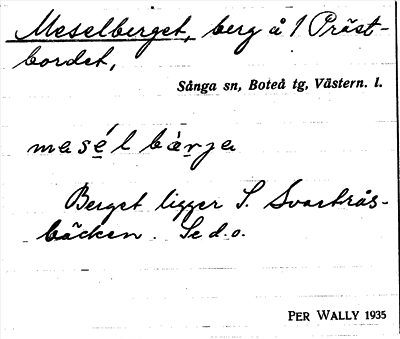 Meselberget, berg å 1 Präst-
bordet,
Sånga sn, Boteå tg, Västern. l.
mesél bärja
Berget ligger S. Svartrås-
bäcken. Se d.o.
PER WALLY 1935